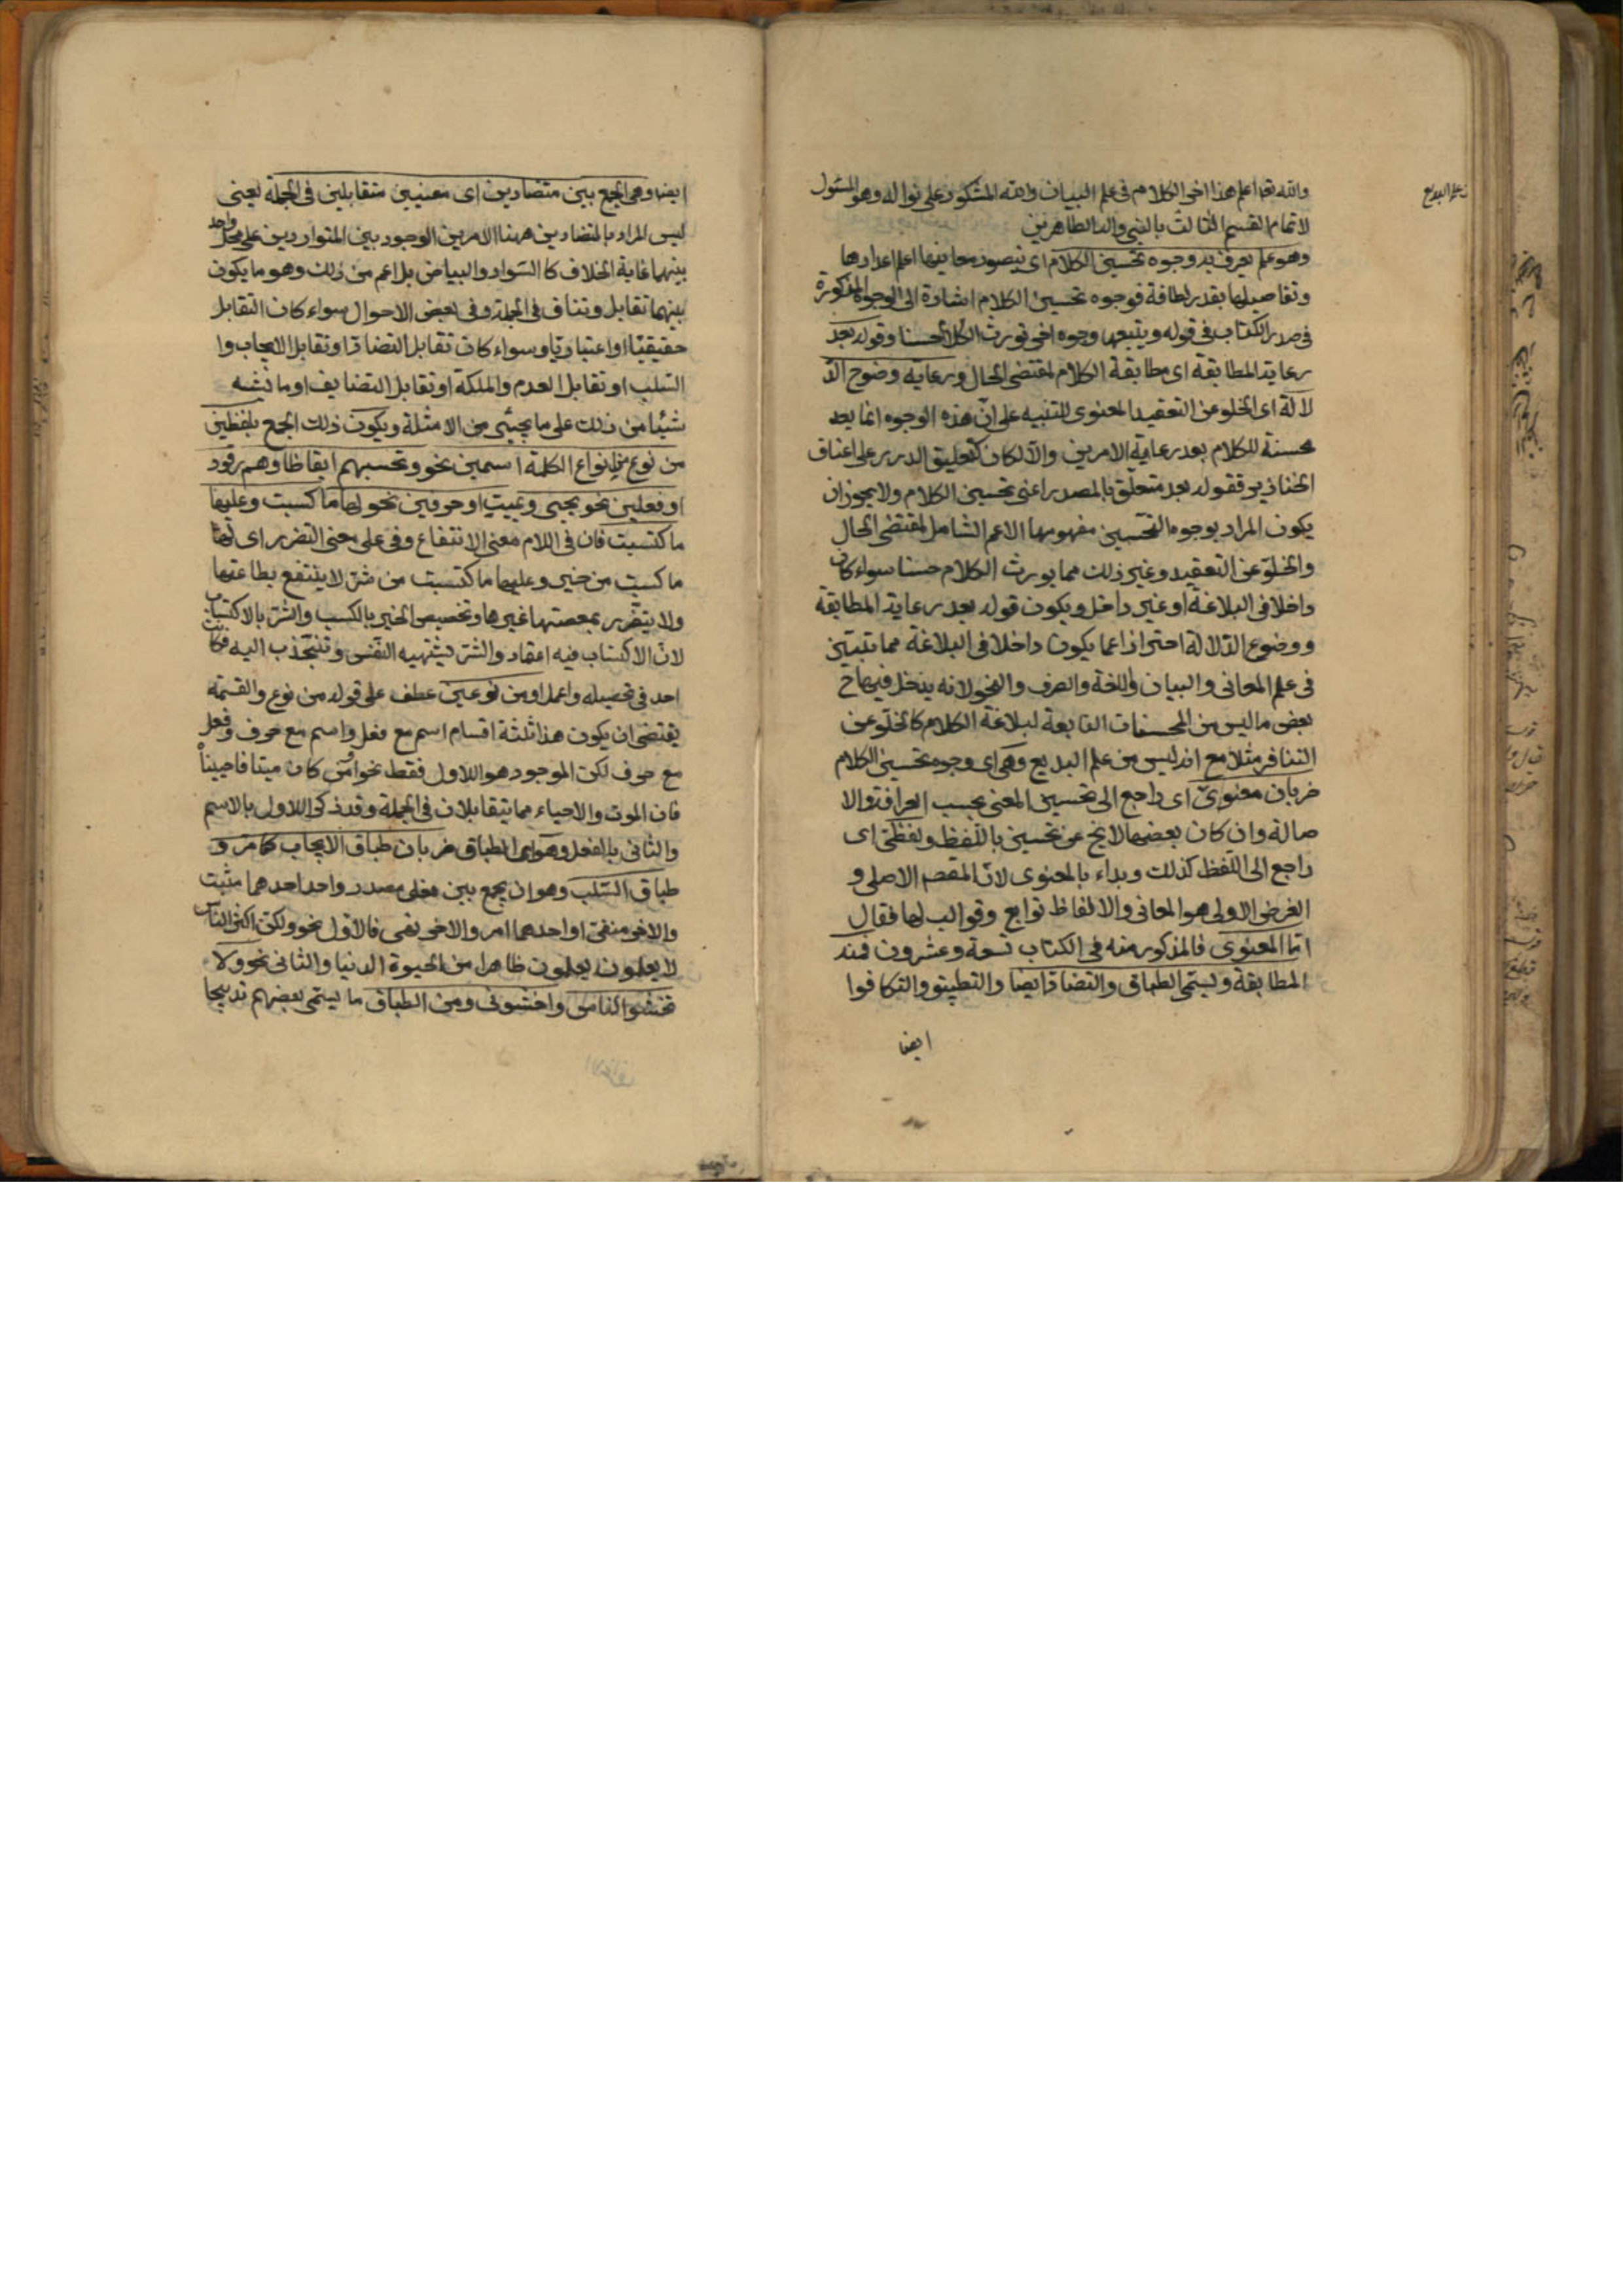 والله تعه اعلم هذا اخر الكلام فى علم البيان والله المشكور على نواله وهو المسئول
لاتمام القسم الثالث بالنبى واله الطاهرين
علم البديع
وهو علم يعرف به وجوه تحسين الكلام اى يتصور معانيها اعلم اعدادها
وتفاصيلها بقدر لطاقة فوجوه تحسين الكلام اشارة الى الوجوه المذكورة
فى صدر الكتاب فى قوله ويتبعها وجوه اخر تورث الكلام حسنا وقوله بعد
رعاية المطابقة اى مطابقة الكلام لمقتضى الحال ورعاية وضوح الد
لالة اى الخلو عن التعقيد المعنوى للتنبيه على ان هذه الوجوه انما يعد
محسنة للكلام بعد رعاية الامرين والا لكان كتعليق الدرر على اعناق
الخنازير فقوله بعد متعلق بالمصدر اعنى تحسين الكلام ولا يجوز ان
يكون المراد بوجوه التحسين مفهومها الاعم الشامل لمقتضى الحال
والخلو عن التعقيد وغير ذلك مما يورث الكلام حسنا سواء كان
داخلا فى البلاغة او غير داخل ويكون قوله بعد رعاية المطابقة
ووضوح الدلالة احترازا عما يكون داخلا فى البلاغة مما يتبين
فى علم المعانى والبيان واللغة والصرف والنحو لانه يدخل فيها ح
بعض ما ليس من المحسنات التابعة لبلاغة الكلام كالخلو عن
التنافر مثلا مع انه ليس من علم البديع وهى اى وجوه تحسين الكلام
ضربان معنوى اى راجع الى تحسين المعنى بحسب العراقة والا
صالة وان كان بعضها لا يخ عن تحسين باللفظ ولفظى اى
راجع الى اللفظ كذلك وبداء بالمعنوى لان المقصم الاصلى و
الغرض الاولى هو المعانى والالفاظ توابع وقوالب لها فقال
اما المعنوى فالمذكور منه فى الكتاب تسعة وعشرون فمنه
المطابقة ويسمى الطباق والتضاد ايضا والتطبيق والتكافوا
ايضا
ايضا وهى الجمع بين متضادين اى معنيين متقابلين فى الجملة يعنى
ليس المراد بالمتضادين ههنا الامرين الوجود بين المتواردين على محل واحد
بينهما غاية الخلاف كالسواد والبياض بل اعم من ذلك وهو ما يكون
بينهما تقابل وتناف فى الجملة وفى بعض الاحوال سواء كان التقابل
حقيقيا او اعتباريا وسواء كان تقابل التضاد او تقابل الايجاب وا
السلب او تقابل العدم والملكة او تقابل التضايف او ما يشبه
شيئا من ذلك على ما يجيئى من الامثلة ويكون ذلك الجمع بلفظين
من نوع من انواع الكلمة اسمين نحو وتحسبهم ايقاظا وهم رقود
او فعلين نحو يحيى ويميت او حرفين نحو لها ما كسبت وعليها
ما كتسبت فان فى اللام معنى الانتفاع وفى على معنى التضرر اى لها
ما كسبت من خير وعليها ما كتسبت من شر لا ينتفع بطاعتها
ولا يتضرر بمعصتها غيرها وتخصيص الخير بالكسب والشر بالاكتساب
لان الاكتساب فيه اعتمال والشر تشتهيه النفس وتنجذب اليه فكانت
اجد فى تحصيله واعمل او من نوعين عطف على قوله من نوع والقسمة
يقتضى ان يكون هذا ثلثة اقسام اسم مع فعل واسم مع حرف وفعل
مع حرف لكن الموجود هو الاول فقط نحو اومن كان ميتا فاحييناه
فان الموت والاحياء مما يتقابلان فى الجملة وقد ذكر الاول بالاسم
والثانى بالفعل وهو اى الطباق ضربان طباق الايجاب كما مر و
طباق السلب وهو ان يجمع بين فعلى مصدر واحد احدهما مثبت
والاخر منفى او احدهما امر والاخر نهى فالاول نحو ولكن اكثر الناس
لا يعلمون يعلمون ظاهرا من الحيوة الدنيا والثانى نحو ولا
تخشوا الناس واخشونى ومن الطباق ما يسمى بعضهم تدبيجا